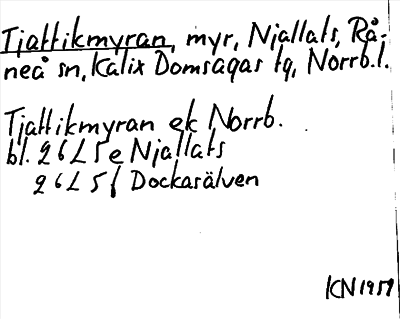 Tjattikmyran, myr, Njallats, Rå-
neå sn, Kalix Domsagas tg, Norrb.l.
Tjattikmyran ek Norrb.
bl. 26L5e Njallats
26L5f Dockasälven
KN 1951